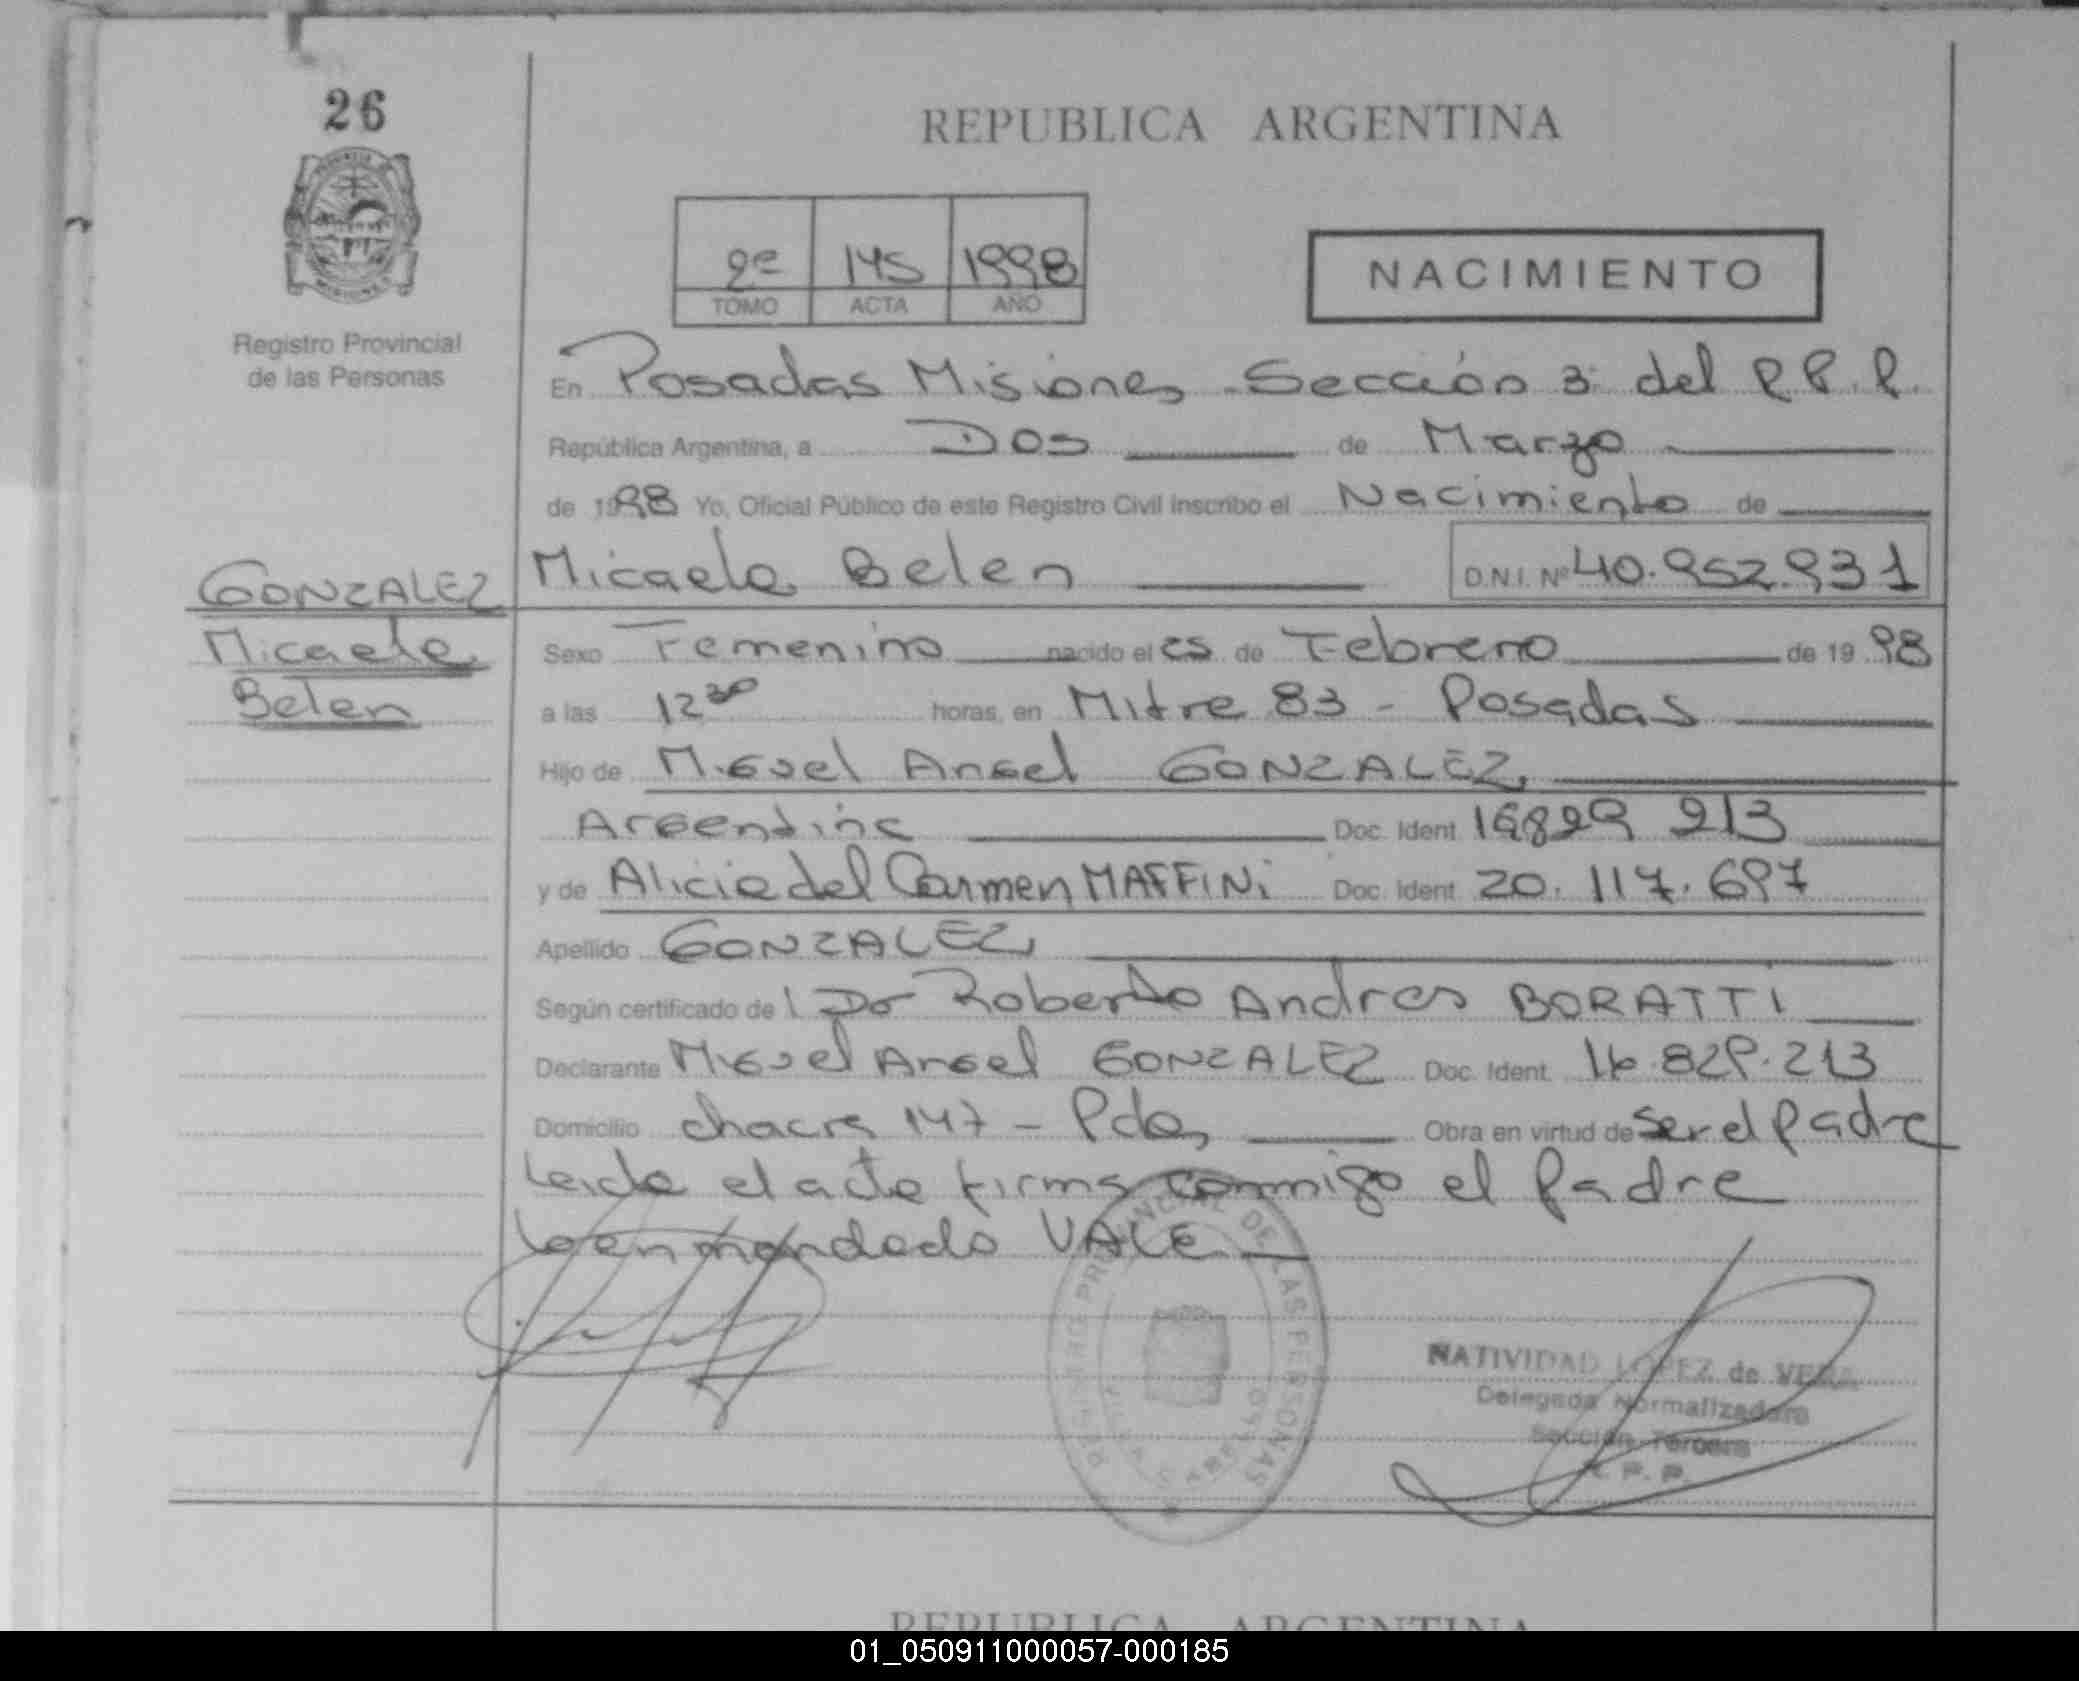 26
REPUBLICA ARGENTINA
2º 145 1998
TOMO ACTA AÑO
NACIMIENTO
Registro Provincial
de las Personas
En Posadas Misiones Sección 3ª del R.P.P.
República Argentina, a Dos de Marzo
de 1998 Yo, Oficial Público de este Registro Civil inscribo el Nacimiento de
Micaela Belen D.N.I. Nº 40.952.931
GONZALEZ
Micaela
Belen
Sexo Femenino nacido el 25 de Febrero de 19 98
a las 12 30 horas, en Mitre 83 - Posadas
Hijo de Miguel Angel GONZALEZ,
Argentina Doc. Ident. 16829 213
y de Alicia del Carmen MAFFINi Doc. Ident. 20.117.697
Apellido GONZALEZ
Según certificado de l Dr Roberto Andres BORATTi
Declarante Miguel Angel GONZALEZ Doc. Ident. 16.829.213
Domicilio chacra 147 - Pdas Obra en virtud de ser el padre
Leida el acta firma conmigo el Padre
Lo enmendado VALE
REGISTRO PROVINCIAL DE LAS PERSONAS
NATIVIDAD LOPEZ de VERA
Delegada Normalizadora
Sección Tercera
R. P. P.
REPUBLICA ARGENTINA
01_050911000057-000185